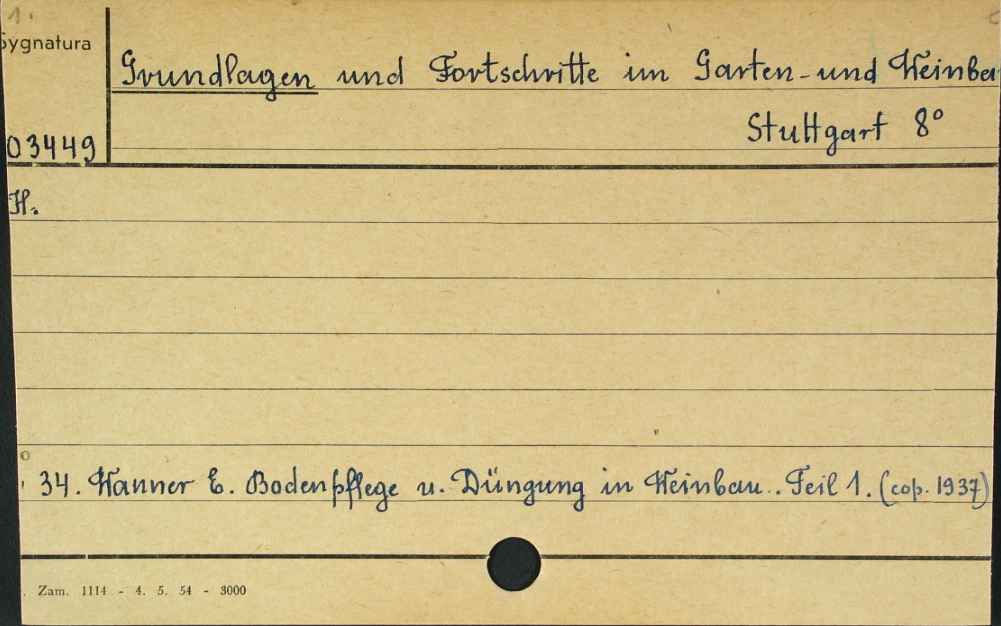 1.
Sygnatura
Grundlagen und Fortschritte im Garten-und Weinba
Stuttgart 8°
03449
H.
34. Wanner E. Bodenpflege u. Düngung in Weinbau.. Teil 1. (cop. 1937)
Zam. 1114 - 4. 5. 54 - 3000